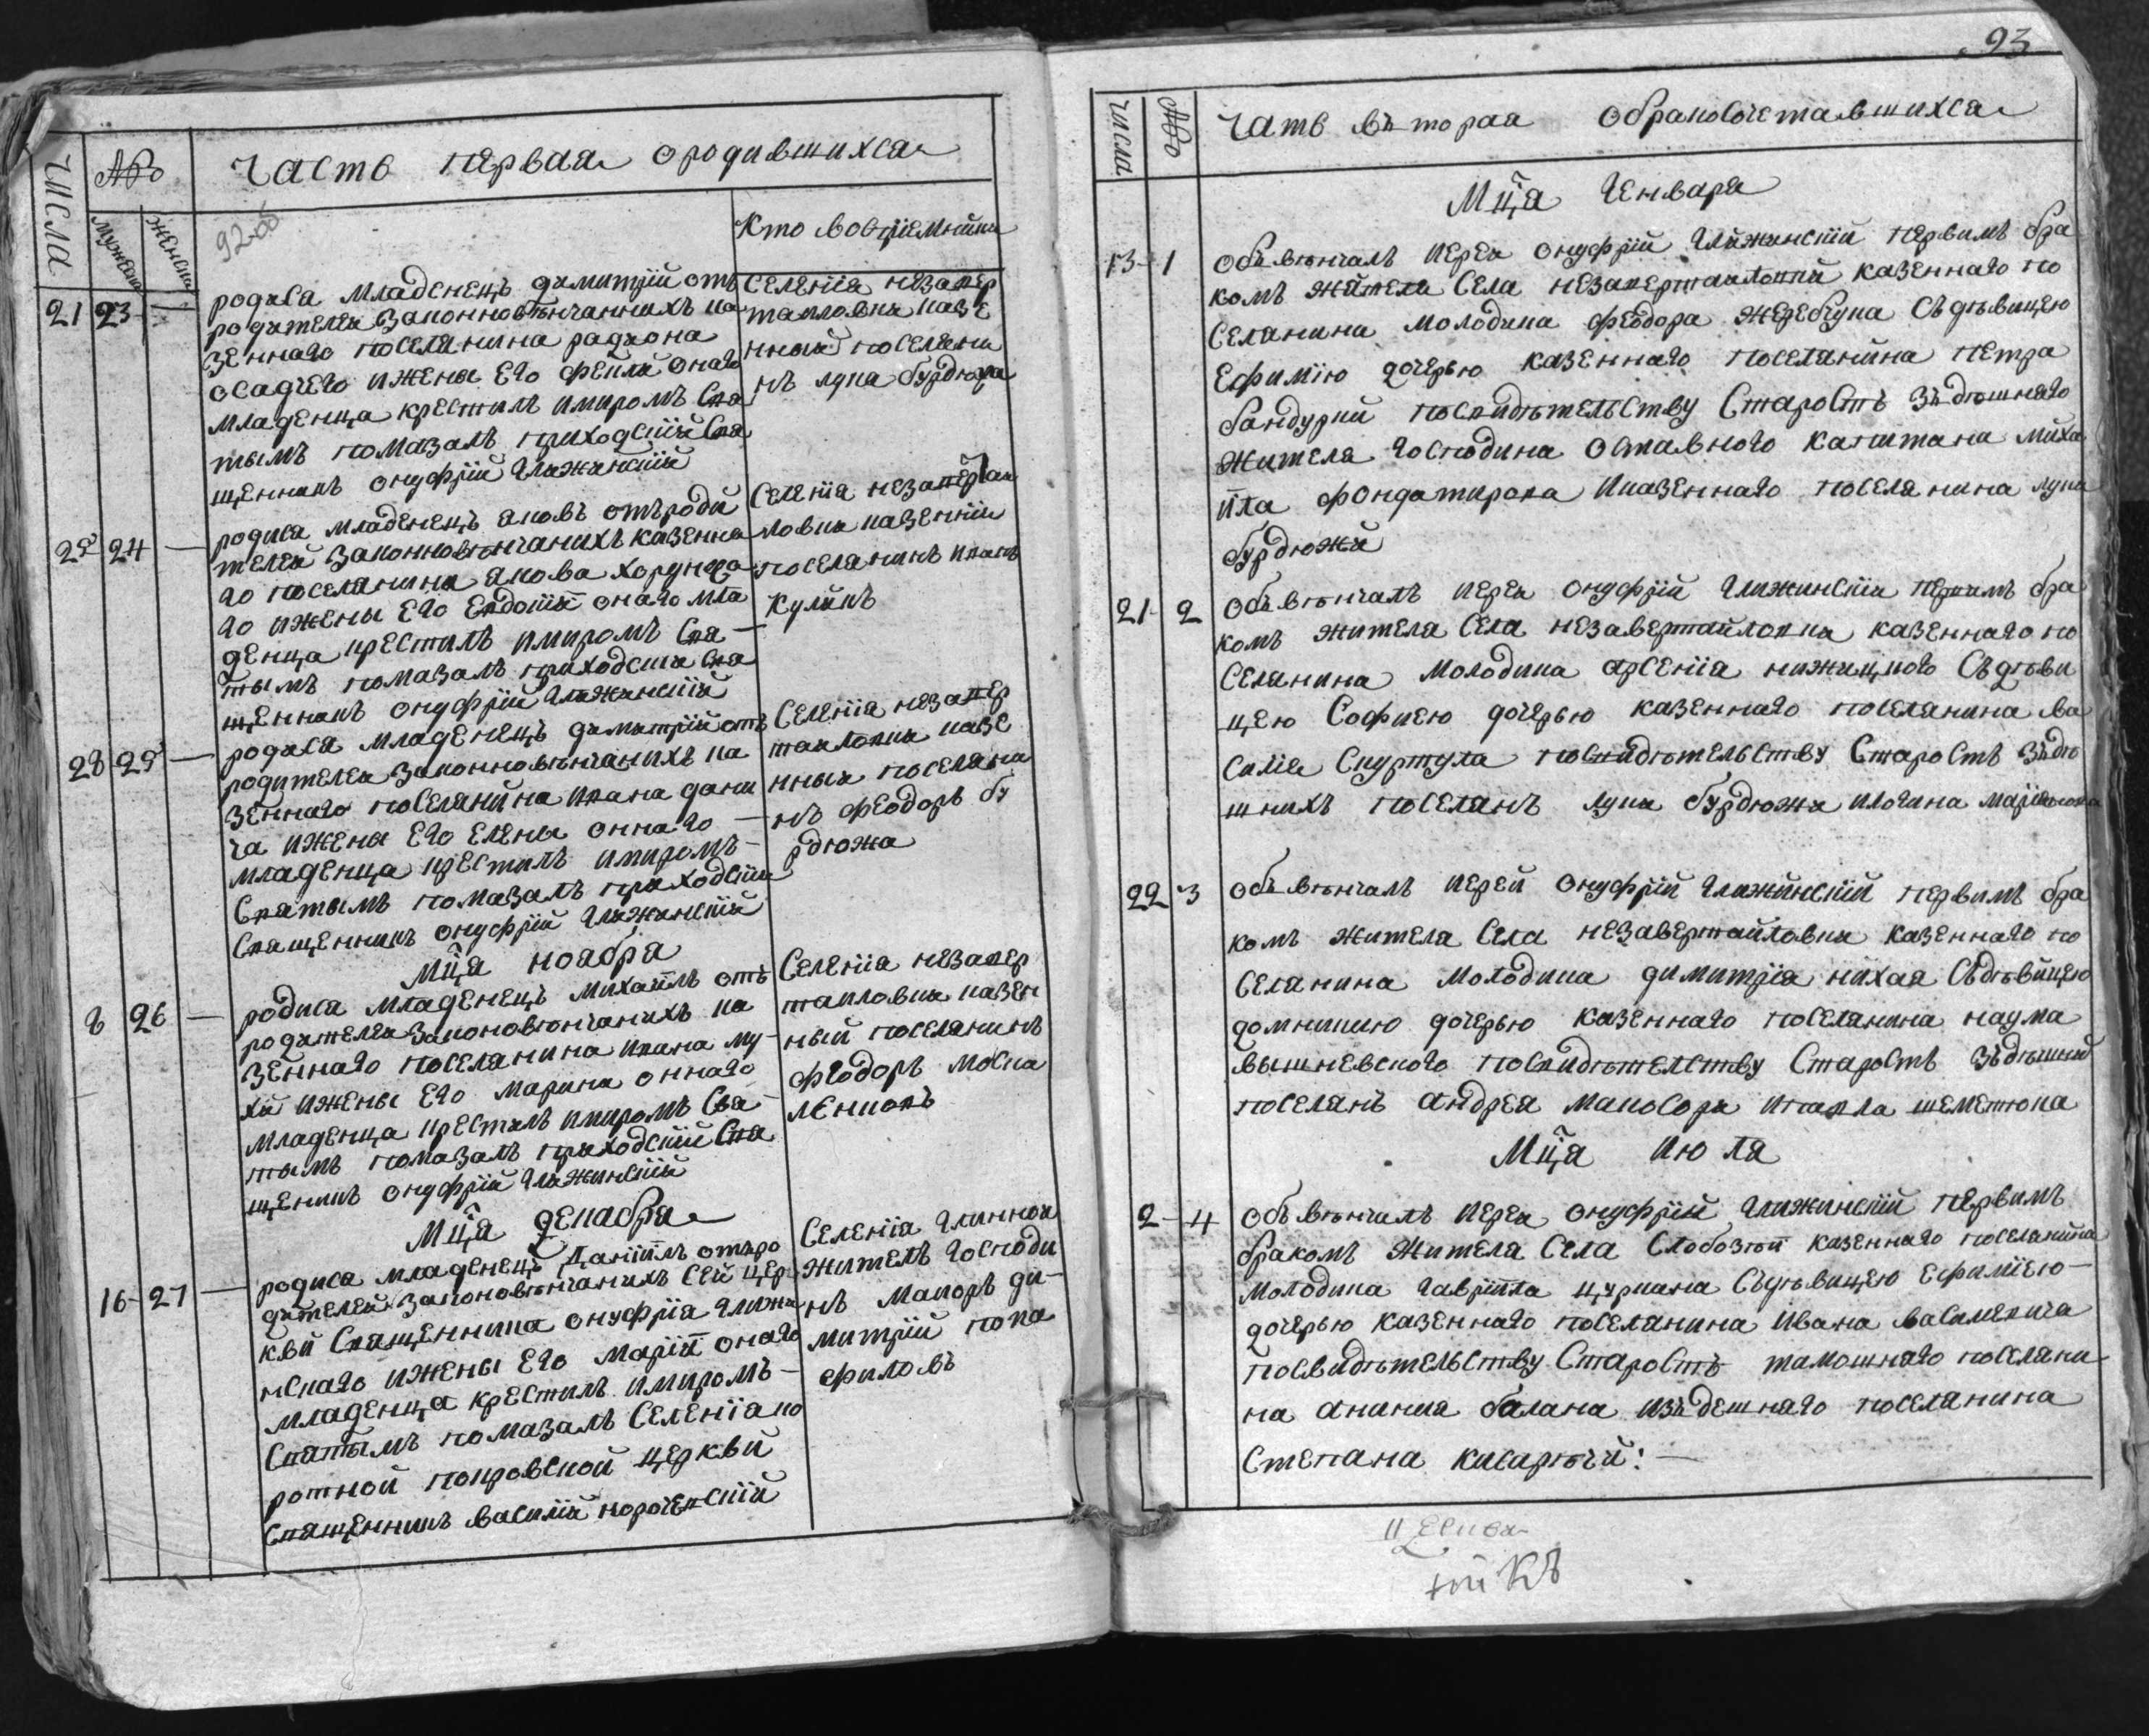 числа
№
мужеска
женска
часть первая ородившихся
92 об
Кто восприемники
21 23 —
родися младенецъ димитрїй отъ
родителеи законновѣнчанныхъ ка
зеннаго поселянина радиона
осадчего ижены его феклы онаго
младенца крестилъ имиромъ Свя
тымъ помазалъ приходскїй Свя
щенникъ онуфрїй Глижинскїй
Селенїя незавер
таиловки казе
нный поселяни
нъ лупа бурдюжа
25 24 —
родися младенецъ яковъ отъроди
телеи законновѣнчаныхъ казенна
го поселянина якова хорунжа
го ижены его Евдокїи онаго мла
денца крестилъ имиромъ Свя —
тымъ помазалъ приходскїи Свя
щенникъ онуфрїй Глижинскїй
Селенїя незавертаи
ловки казеннїи
поселянинъ иванъ
куликъ
28 25 —
родися младенецъ димитрїй отъ
родителеи законновѣнчаныхъ ка
зеннаго поселянина ивана дани
ча ижены его елены оннаго —
младенца крестилъ имиромъ —
Святымъ помазалъ приходскїи
Священникъ онуфрїй Глижинскїй
Селенїя незавер
таиловки казе
нныи поселяни
нъ феодоръ бу
рдюжа
Мц̃а ноября
8 26 —
родися младенецъ михаилъ отъ
родителеи законовѣнчаныхъ ка
зеннаго поселянина ивана му-
хи ижены его марины оннаго
младенца крестилъ имиромъ Свя-
тымъ помазалъ приходскїй Свя
щеникъ онуфрїй Глижинскїй
Селенїя незавер
таиловки казен
ный поселянинъ
феодоръ моска
ленковъ
Мц̃а декабря
16 - 27 —
родися младенецъ Данїилъ отъро
дителей законовѣнчаныхъ Сей цер
кви Священника онуфрїя Глижи
нскаго ижены его марїи онаго
младенца крестилъ имиромъ —
Святымъ помазалъ Селенїя ко
ротной покровской церкви
Священникъ василїй корочевскїй
Селенїя Глинной
житель господи
нъ маиоръ ди-
митрїй попа
филовъ
93
числа
№
чать въторая обраковочетавшихся
Мц̃а Генваря
13 - 1
Обвѣнчалъ иереи онуфрїй Глижинскїй первимъ бра
комъ жителя Села незавертаиловки казеннаго по
Селянина молодика феодора жеребцука Съдѣвицею
Ефимїю дочерью казеннаго поселянина петра
бандурки посвидѣтельству Старостъ зъдѣшняго
жителя господина отавного капитана миха
ила фондатирова иказеннаго поселянина лупи
бурдюжи
21 - 2
Обвѣнчалъ иереи онуфрїй Глижинскїи первимъ бра
комъ жителя Села незавертайловки казеннаго по
Селянина молодика арсенїя нижицкого Съдѣви
цею Софиею дочерью казеннаго поселянина ва
силїя Скуртула посвидѣтельству Старостъ зъдѣ
шнихъ поселянъ лупи бурдюжи илогина марїянова
22 3
Объвѣнчалъ иерей онуфрїй Глижинскїй первимъ бра
комъ жителя Села незавертайловки казеннаго по
Селянина молодика димитрїя михая Съдѣвицею
домникию дочерью казеннаго поселянина наума
вышневского посвидѣтелству Старостъ зъдѣшнй
поселянъ андрея макосора ипавла шеметова
Мц̃а июля
2 - 4
Обвѣнчалъ иереи онуфрїй Глижинскїй первимъ
бракомъ жителя Села Слобозїи казеннаго поселянина
молодика гаврїила цуркана Съдѣвицею Ефимїею —
дочерью казеннаго поселянина Ивана василевича
посвидѣтельству Старостъ тамошняго поселяни
на анания балана изъдешняго поселянина
Степана кисарѣчи: —